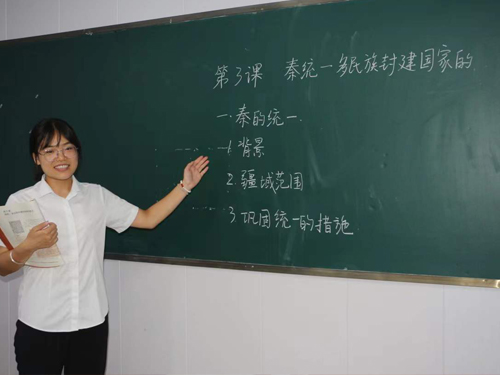 第3课 秦统一多民族封建国家的
一.秦的统一.
1.背景
2.疆域范围
3.巩固统一的措施